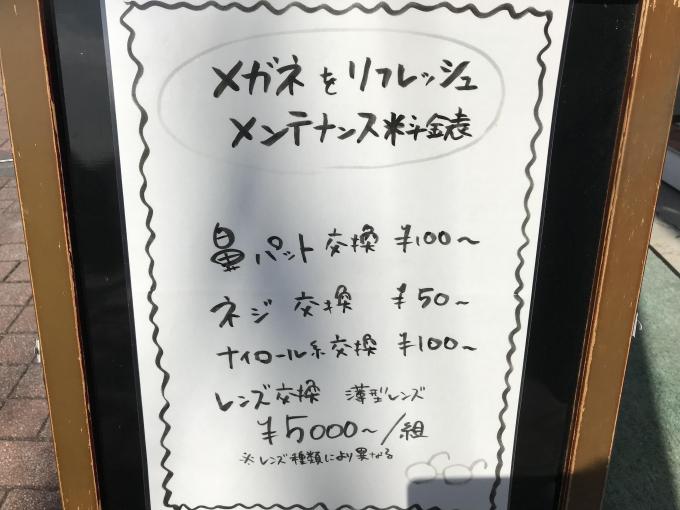 メガネをリフレッシュ
メンテナンス料金表
鼻パット交換 ¥100〜
ネジ 交換 ¥50〜
ナイロール糸交換 ¥100〜
レンズ交換 薄型レンズ
¥5000〜/組
※レンズ種類により異なる